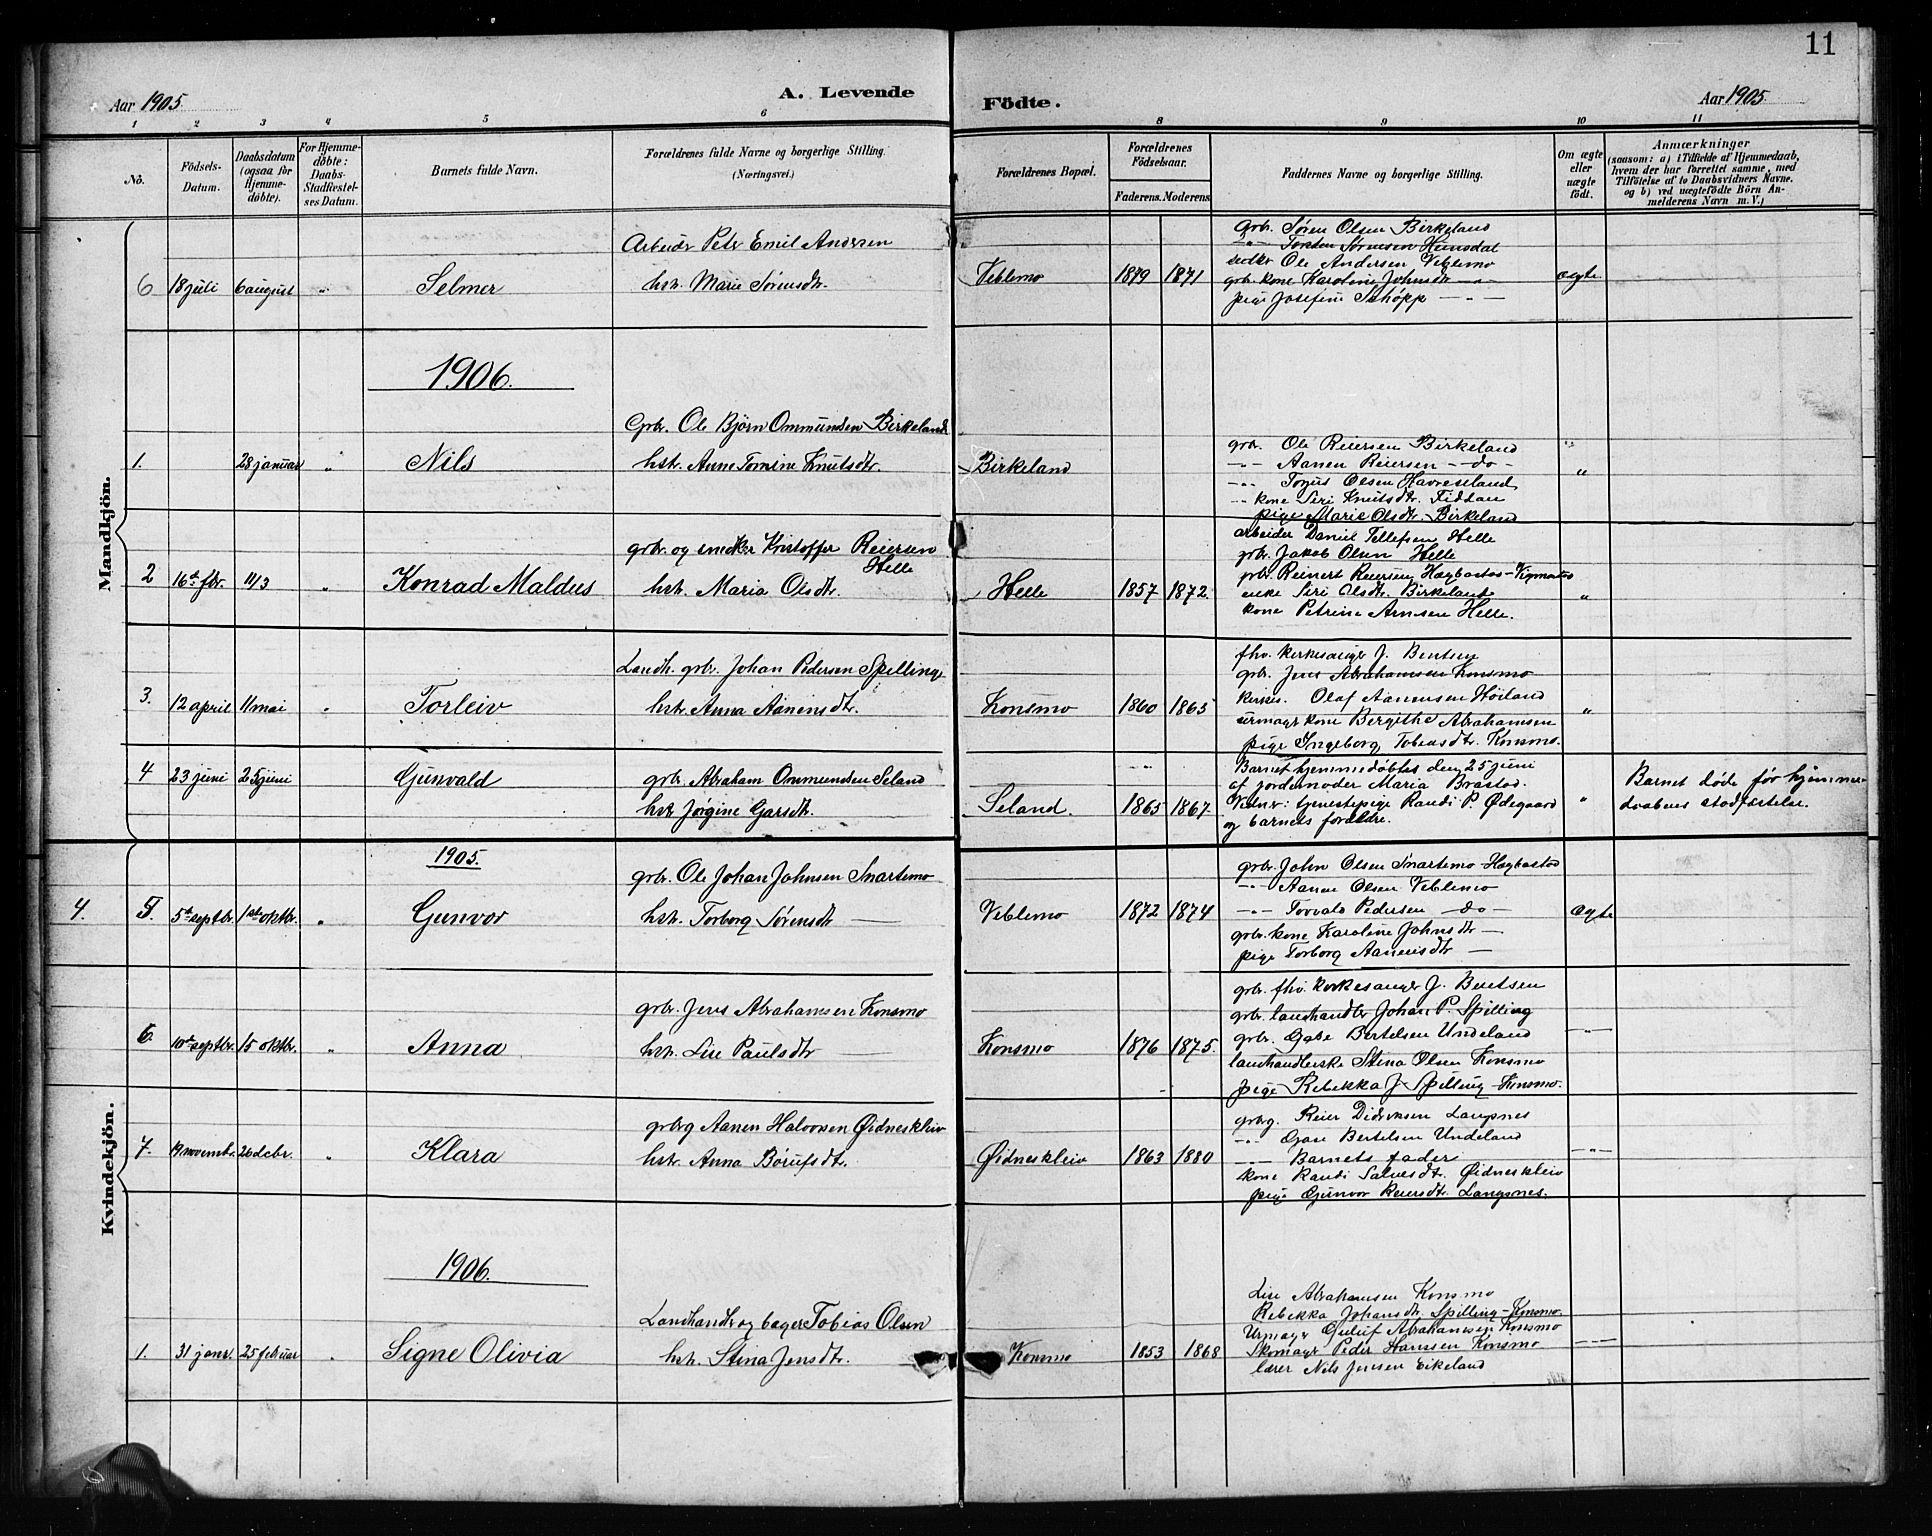 11
Aar 1905
A. Levende
Födte.
Aar 1905
1 2 3 4 5 6 8 9 10 11
No.
Födsels-Datum.
Daabsdatum (ogsaa for Hjemme-döbte).
For Hjemme-döbte: Daabs-Stadfæstel-ses Datum.
Barnets fulde Navn.
Forældrenes fulde Navne og borgerlige Stilling.
(Næringsvei.)
Forældrenes Bopæl.
Forældrenes Födselsaar.
Faderens. Moderens.
Faddernes Navne og borgerlige Stilling.
Om ægte eller uægte födt.
Anmærkninger
(saasom: a) i Tilfælde af Hjemmedaab,
hvem der har forrettet samme, med
Tilföielse af to Daabsvidners Navne.
og b) ved uægtefödte Börn An-
melderens Navn m. V.)
Mandkjön.
6 18 juli 6 august " Selmer
Arbeider Peter Emil Andersen
hstr. Marie Sørensdtr.
Veblemo 1879 1871
grb. Søren Olsen Birkeland
-"- Torsten Sørensen Heimsdal
Ole Andersen Veblemo
grb. kone Karoline Johnsdtr -"-
pige Josefine Schöpp -"-
ægte
1906.
1. 28 januar " Nils
Grbr. Ole Bjørn Ommundsen Birkeland
hstr. Anne Tomine Knutsdtr.
Birkeland
grb. Ole Reiersen Birkeland
-"- Aanen Reiersen -do-
-"- Tonjus Olsen Havreseland
-- kone Siri Knutsdtr. Fiddan
pige Marie Olsdtr. Birkeland
"
2 16de fbr. 11/3 " Konrad Maldus
grbr. og snedker Kristoffer Reiersen
Helle
hstr. Maria Olsdtr.
Helle 1857 1872.
arbeider Daniel Tellefsen Helle
grb. Jakob Olsen Helle
grb. Reinert Reiersen Hægbostad-Vigmostad
enke Siri Olsdtr. Birkeland
kone Petrine Arnesen Helle.
"
3. 12 april 11 mai " Torleiv
Landh. grbr. Johan Pedersen Spelling
hstr. Anna Aanensdtr.
Konsmo 1860 1865
fhv. kirkesanger J. Bentsen
grb. Jens Abrahamsen Konsmo
kirkes. Olaf Aanensen Höiland
urmagr kone Bergithe Abrahamsen
pige Ingeborg Tobiasdtr. Konsmo.
"
4 23 juni 25 juni Gunvald
grbr. Abraham Ommundsen Seland
hstr Jørgine Garsdtr.
Seland. 1865 1867
Barnet hjemmedøbtes den 25 juni
af jordemoder Maria Brastad.
Vidner: tjenestepige Randi P. Ødegaard
og barnets forældre.
"
Barnet døde før hjemme-
daabens stadfæstelse.
Kvindekjön.
1905.
4. 5. 5te septbr. 1ste oktbr. " Gunvor
grbr. Ole Johan Johnsen Snartemo
hstr. Torborg Sørensdtr —
Veblemo 1872 1874
grbr. John Olsen Snartemo-Hægbostad
-"- Aanen Olsen Veblemo
-"- Torvald Pedersen -do-
grbr. kone Karoline Johnsdtr —
pige Torborg Aanensdtr —
ægte
6. 10de septbr. 15 oktbr. " Anna
grbr. Jens Abrahamsen Konsmo
hstr. Lise Paulsdtr —
Konsmo 1876 1875.
grbr. fhv. kirkesanger J. Bentsen
grbr. landhandler Johan P. Spilling
grbr. Gabe Bertelsen Undeland
landhandlerske Stina Olsen Konsmo
pige Rebekka J. Spilling-Konsmo.
-"-
7. 19 novembr. 26 decbr. " Klara
grbrg Aanen Halvorsen Øidneskleiv
hstr. Anna Børufsdtr.
Øidneskleiv 1863 1880
grbrg. Reier Didriksen Langsnes
-"- Gabe Bertelsen Undeland
Barnets fader
kone Randi Salvesdtr. Øidneskleiv
pige Gunvor Reiersdtr. Langsnes.
-"-
1906.
1. 31 janr. 25 februar " Signe Olivia
Landhandlr og bager Tobias Olsen
hstr. Stina Jensdtr.
Konsmo 1853 1868
Lise Abrahamsen Konsmo
Rebekka Johansdtr. Spilling-Konsmo
Urmagr Gulluf Abrahamsen Konsmo
Skomagr Peder Hanssen Konsmo
lærer Nils Jensen Eikeland